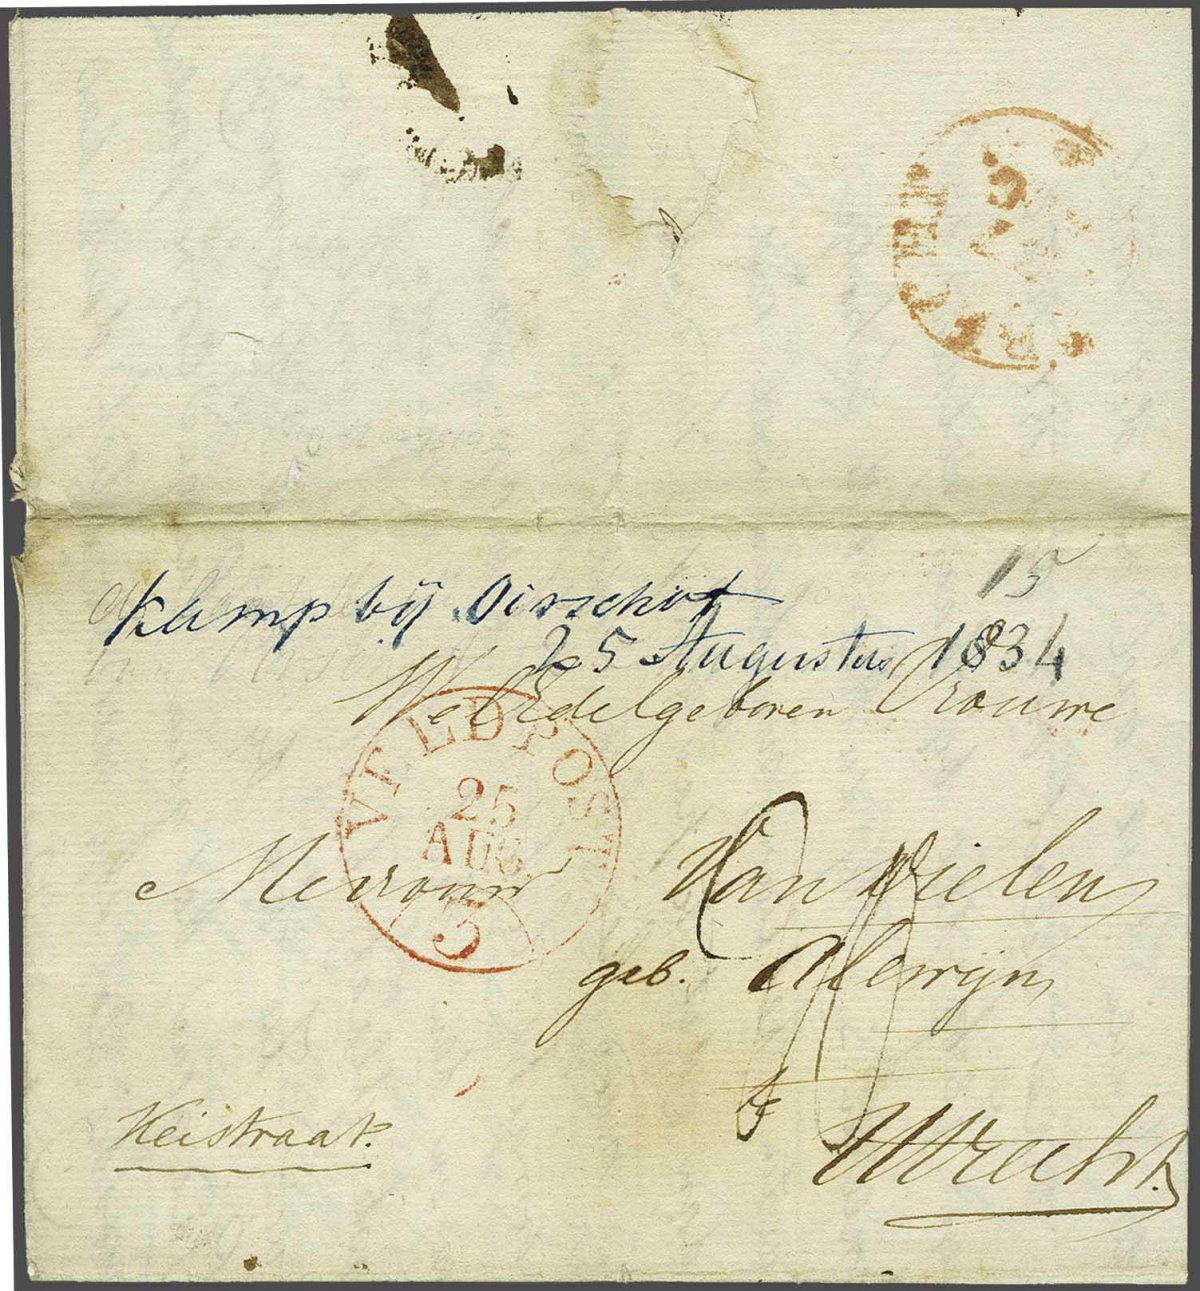 UTRECHT
15
Kamp bij Oirschot
25 Augustus 1834
WelEdelgeboren Vrouwe
VELDPOST
25
AUG
3
Mevrouw Van Vielen
geb. Alewijn
te
Utrecht.
Keistraat.